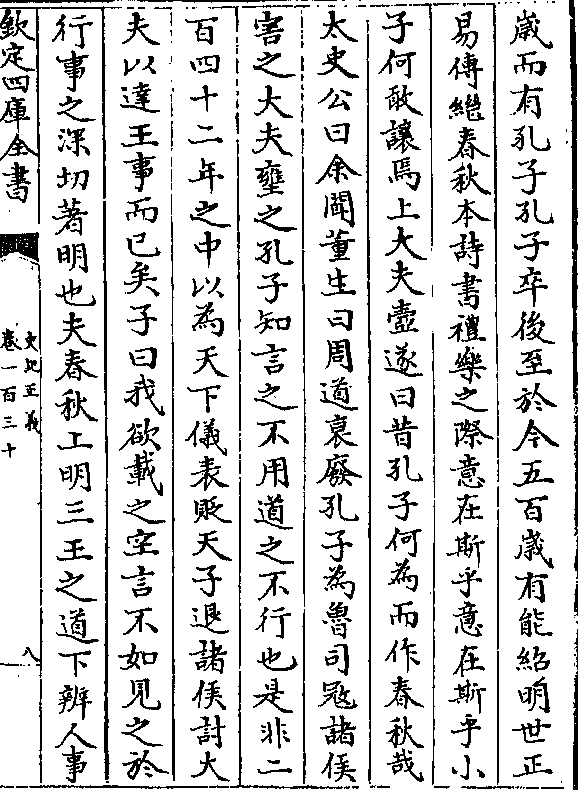 歲而有孔子孔子卒後至於今五百歲有能紹明世正
易傳繼春秋本詩書禮樂之際意在斯乎意在斯乎小
子何敢讓焉上大夫壺遂曰昔孔子何為而作春秋哉
太史公曰余聞董生曰周道衰廢孔子為魯司寇諸侯
害之大夫壅之孔子知言之不用道之不行也是非二
百四十二年之中以為天下儀表貶天子退諸侯討大
夫以達王事而已矣子曰我欲載之空言不如見之於
行事之深切著明也夫春秋上明三王之道下辨人事
欽定四庫全書
史記正義
卷一百三十
八